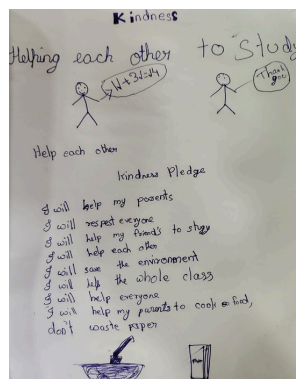 Kindness
Helping each other to study
Thank you
Help each other
Kindness Pledge
I will help my parents
I will respect everyone
I will help my friends to study
I will help each other
I will save the environment
I will help the whole class
I will help everyone
I will help my parents to cook food,
don't waste paper